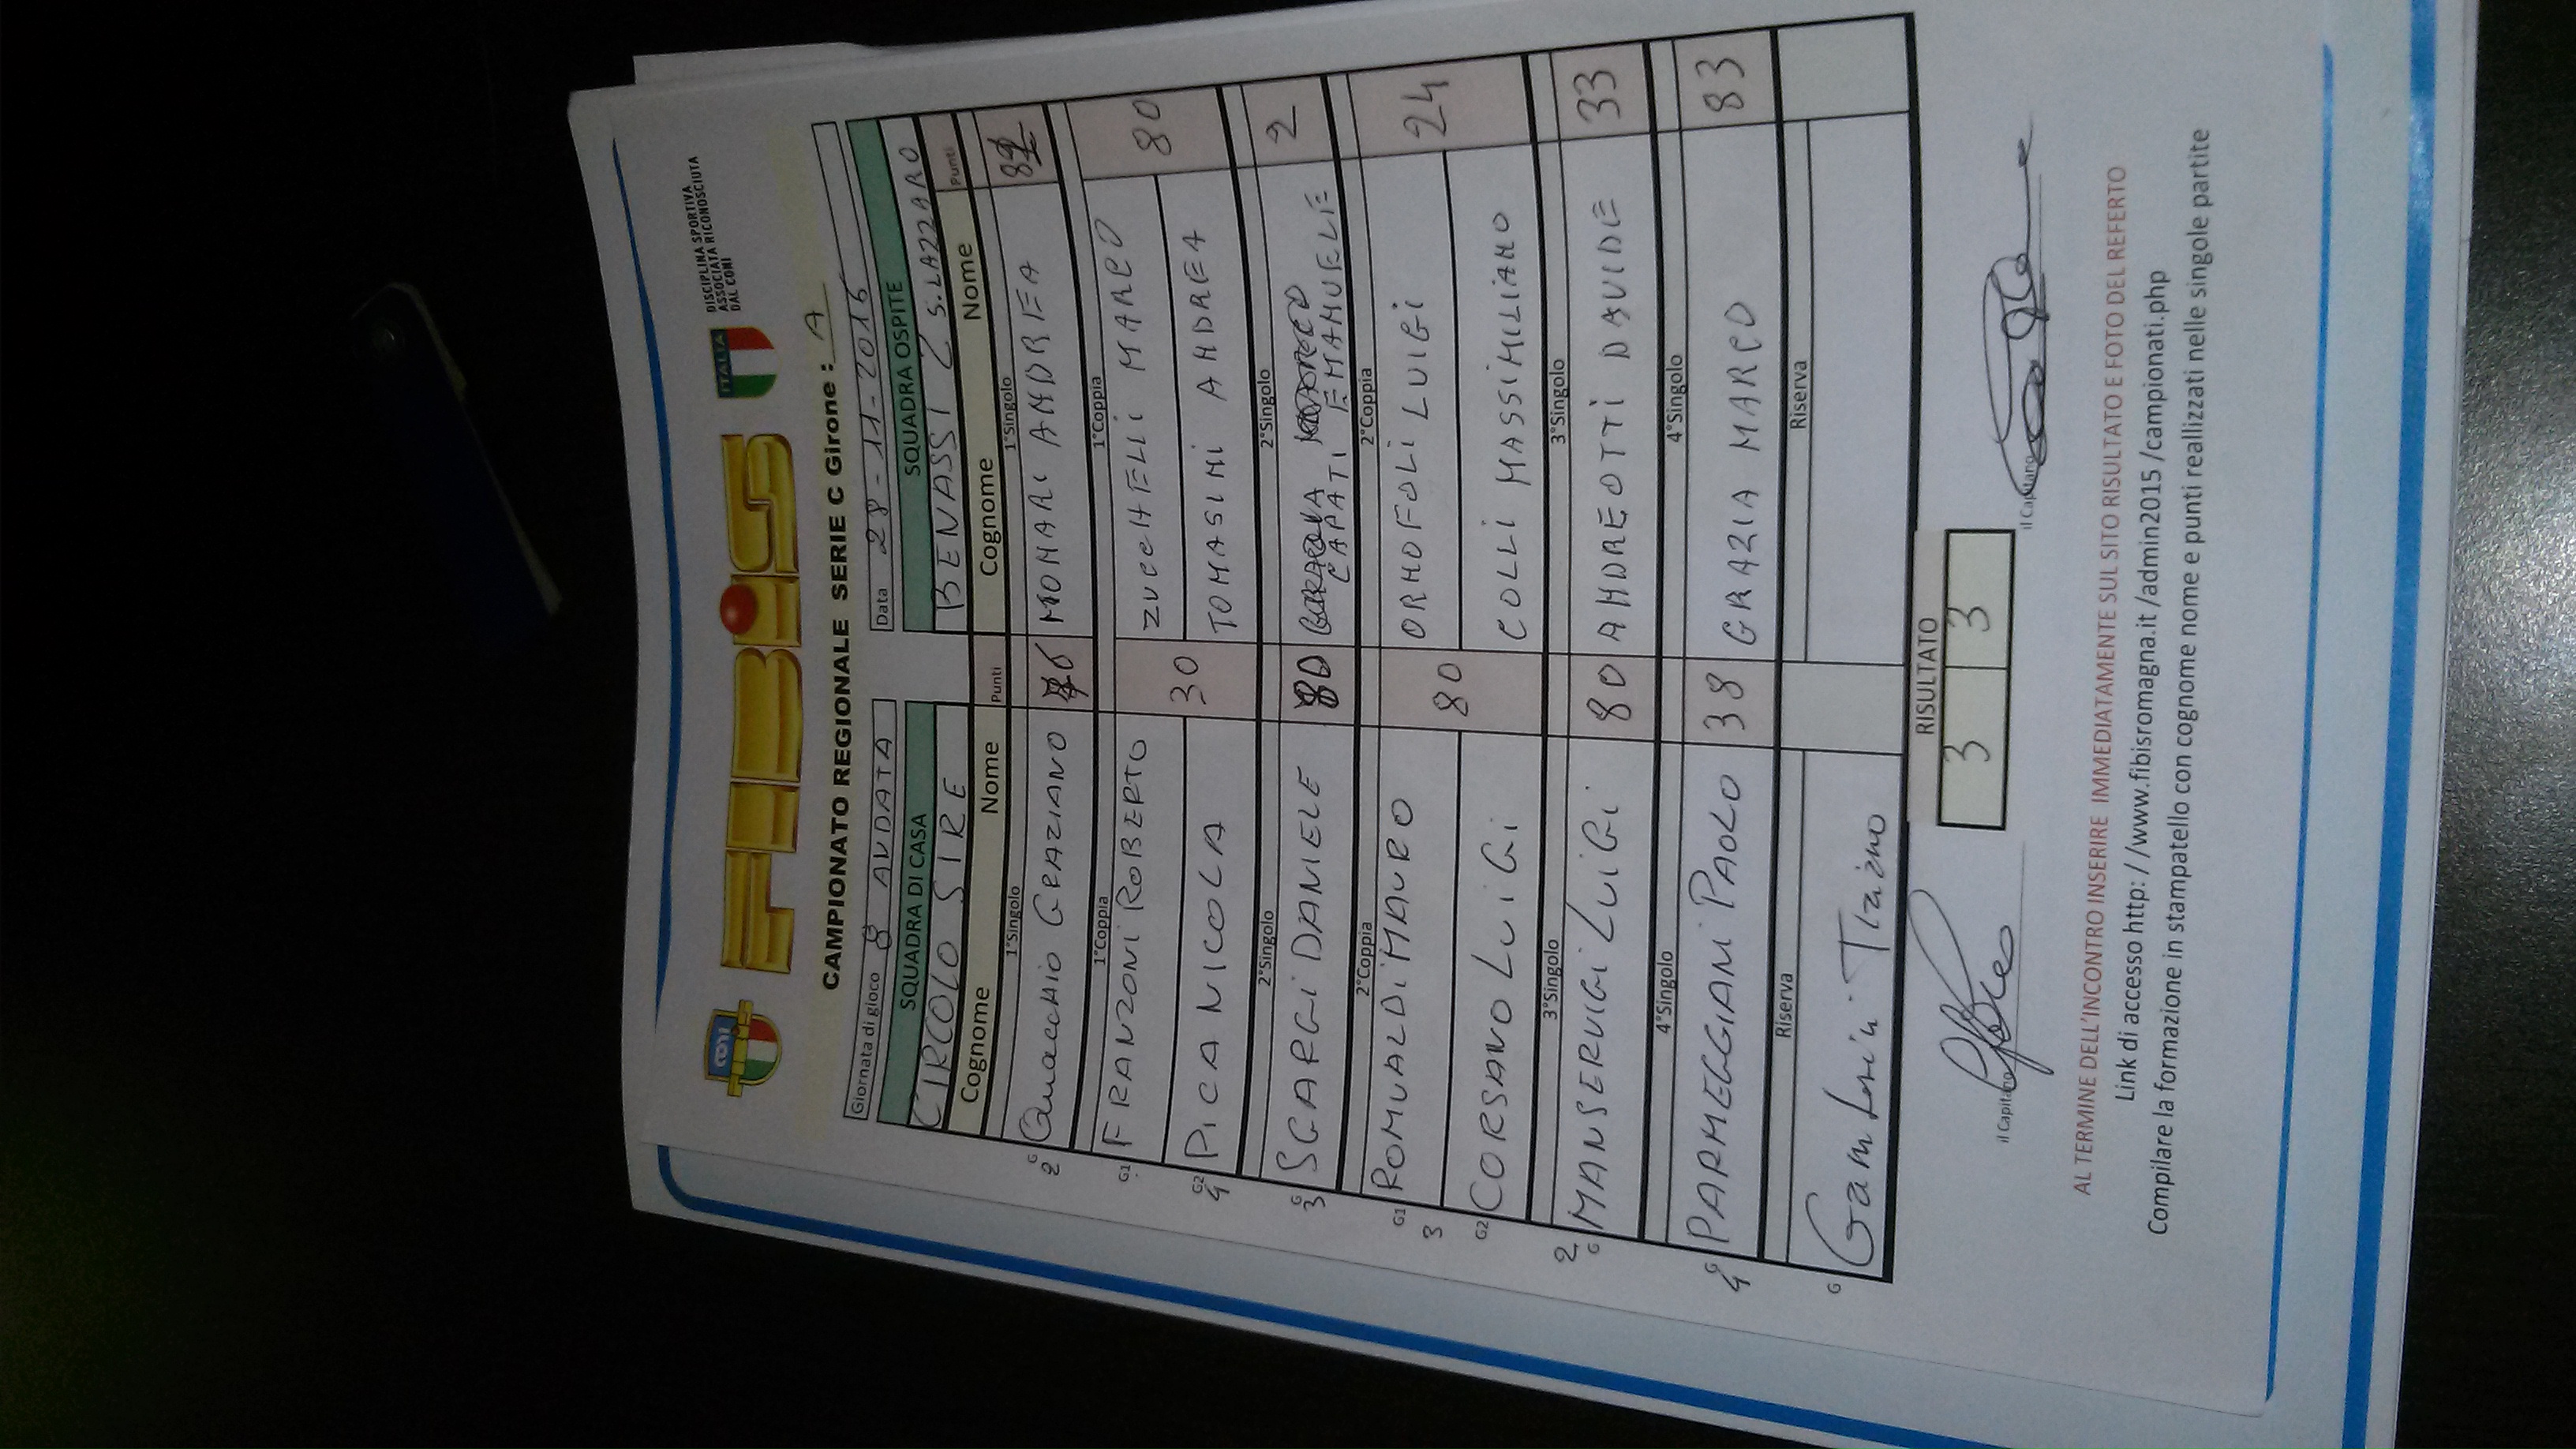 CONI
FIBiS
ITALIA
DISCIPLINA SPORTIVA
ASSOCIATA RICONOSCIUTA
DAL CONI
CAMPIONATO REGIONALE SERIE C Girone : A
Giornata di gioco 8 ANDATA Data 28-11-2015
SQUADRA DI CASA SQUADRA OSPITE
CIRCOLO SIRE BENASSI 2 S.LAZZARO
Cognome Nome Punti Cognome Nome Punti
1°Singolo 1°Singolo
G 2 GRAZIANO 6 MONARI ANDREA
1°Coppia 1°Coppia
G1 FRANZONI ROBERTO 30 ZUCCHELLI MARCO 80
G2 4 PICA NICOLA TOMASINI ANDREA
2°Singolo 2°Singolo
G 3 SGARGI DANIELE 80 CAPATI EMANUELE 2
2°Coppia 2°Coppia
G1 ROMUALDI MAURO 80 ORNOFOLI LUIGI 24
3
G2 CORSANO LUIGI COLLI MASSIMILIANO
3°Singolo 3°Singolo
2 G MANSERVIGI LUIGI 80 ANDREOTTI DAVIDE 33
4°Singolo 4°Singolo
G 4 PARMEGGIANI PAOLO 38 GRAZIA MARCO 83
Riserva Riserva
G
RISULTATO
3 3
il Capitano il Capitano
AL TERMINE DELL'INCONTRO INSERIRE IMMEDIATAMENTE SUL SITO RISULTATO E FOTO DEL REFERTO
Link di accesso http: / /www.fibisromagna.it /admin2015 /campionati.php
Compilare la formazione in stampatello con cognome nome e punti reallizzati nelle singole partite